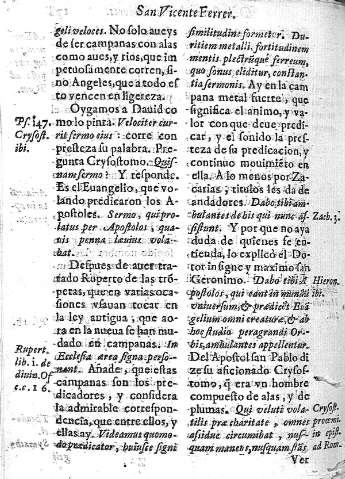 San Vicente Ferrer.
geli veloces. No solo aueys
de ser campanas con alas
como aues, y rios, que im
petuosamente corren, si-
no Angeles, que a todo es
to vencen en ligereza.
Oygamos a Dauid co
mo lo pinta. Velociter cur
rit sermo eius: corre con
presteza su palabra. Pre-
gunta Crysostomo. Quis-
nam sermo? Y responde.
Es el Euangelio, que vo-
lando predicaron los A-
postoles. Sermo, qui pro-
latus per Apostolos, qua-
uis penna leuius vola-
bat.
Despues de auer tra-
tado Ruperto de las tro-
petas, que en varias oca
siones vsauan tocar en
la ley antigua; que ao
ra en la nueua se han mu-
dado en campanas. In
Ecclesia area signa perso-
nant. Añade, que estas
campanas son los pre-
dicadores, y considera
la admirable correspon-
dencia, que entre ellos, y
ellas ay. Videamus quomo-
do prædicator, huiusce signi
Ps. 147.
Crysost.
ibi.
Rupert.
lib. 1. de
diuin. Of
c. c. 16.
similitudine formetur. Du-
ritiem metalli, fortitudinem
mentis plectrúque ferreum,
quo sonus eliditur, constan-
tia sermonis. Ay en la cam
pana metal fuerte, que
significa el animo, y va-
lor con que deue predi-
car, y el sonido la pres-
teza de su predicacion, y
continuo mouimiéto en
ella. A lo menos por Za-
carias; titulos les da de
andadores. Dabo tibi am-
bulantes de his qui nunc as-
sistunt. Y porque no aya
duda de quienes se en-
tienda, lo explicó el Do-
tor insigne y maximo san
Geronimo. Dabo tibi A
postolos, qui eant in mundũ
vniuersum, & prædicẽt Eua
gelium omni creaturæ, & ab
hoc studio peragrandi Or-
bis, ambulantes appellentur.
Del Apostol san Pablo di
ze su aficionado Crysos-
tomo, q̃ era vn hombre
compuesto de alas, y de
plumas. Qui veluti vola-
tilis præ charitate, omnes
assidue circumibat, nus-
quam manens, nusquam stás
Zach. 3.
Hieron.
ibi.
Crysost.
proœmi.
in epist.
ad Rom.
Ver